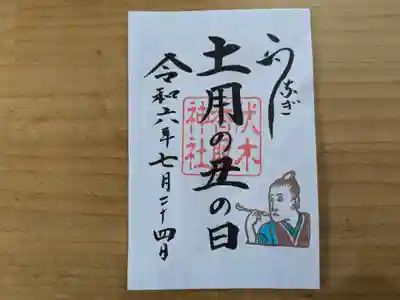 うなぎ
土用の丑の日
伏木
香取
神社
令和六年七月二十四日